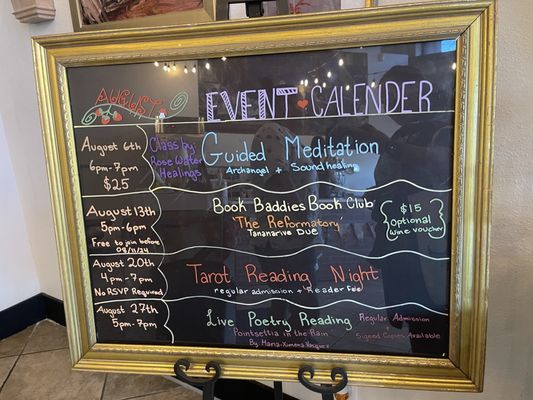 AUGUST
EVENT CALENDER
August 6th
6pm-7pm
$25
Class by:
Rose Water
Healings
Guided Meditation
Archangel + Soundhealing
August 13th
5pm-6pm
Free to join before
08/11/24
Book Baddies Book Club
'The Reformatory'
Tananarive Due
$15
Optional
wine voucher
August 20th
4pm-7pm
No RSVP Required
Tarot Reading Night
regular admission + Reader Fee
August 27th
5pm-7pm
Live Poetry Reading
Pointsettia in the Rain
By: Maria-Ximena Vasquez
Regular Admission
+
Signed Copies Available